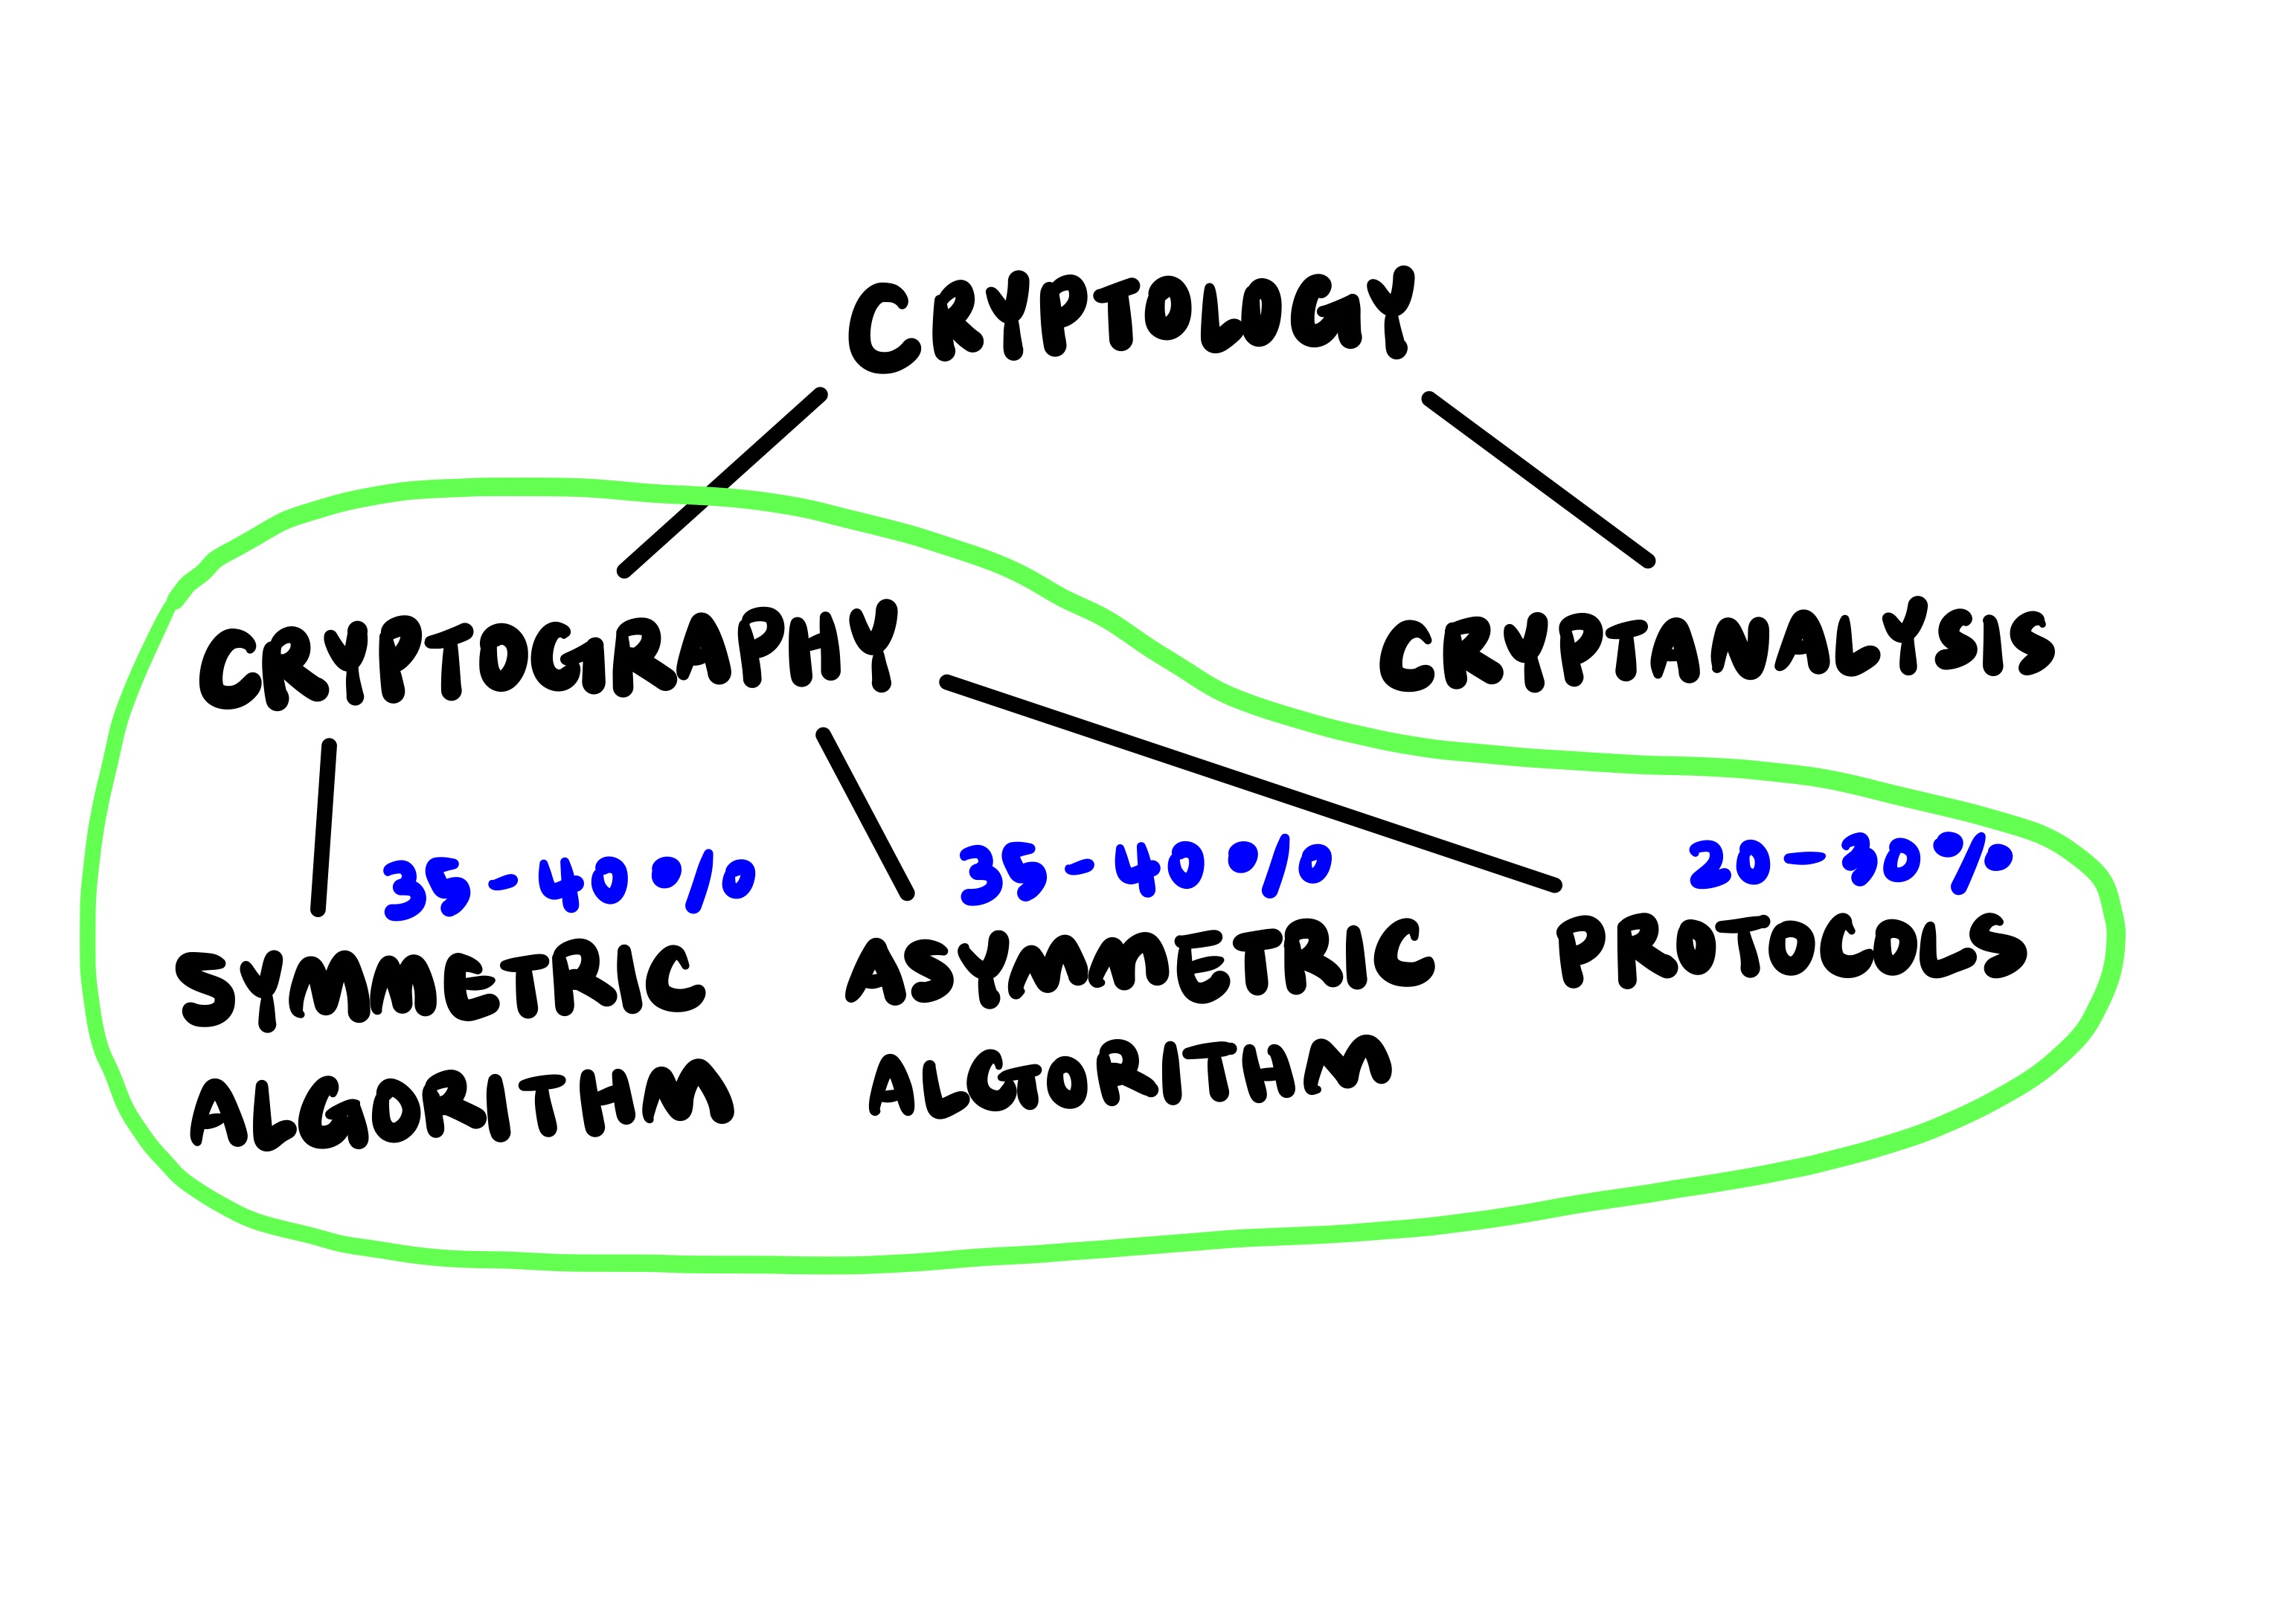 CRYPTOLOGY
CRYPTOGRAPHY
CRYPTANALYSIS
35-40%
35-40%
20-30%
SYMMETRIC
ALGORITHM
ASYMMETRIC
ALGORITHM
PROTOCOLS